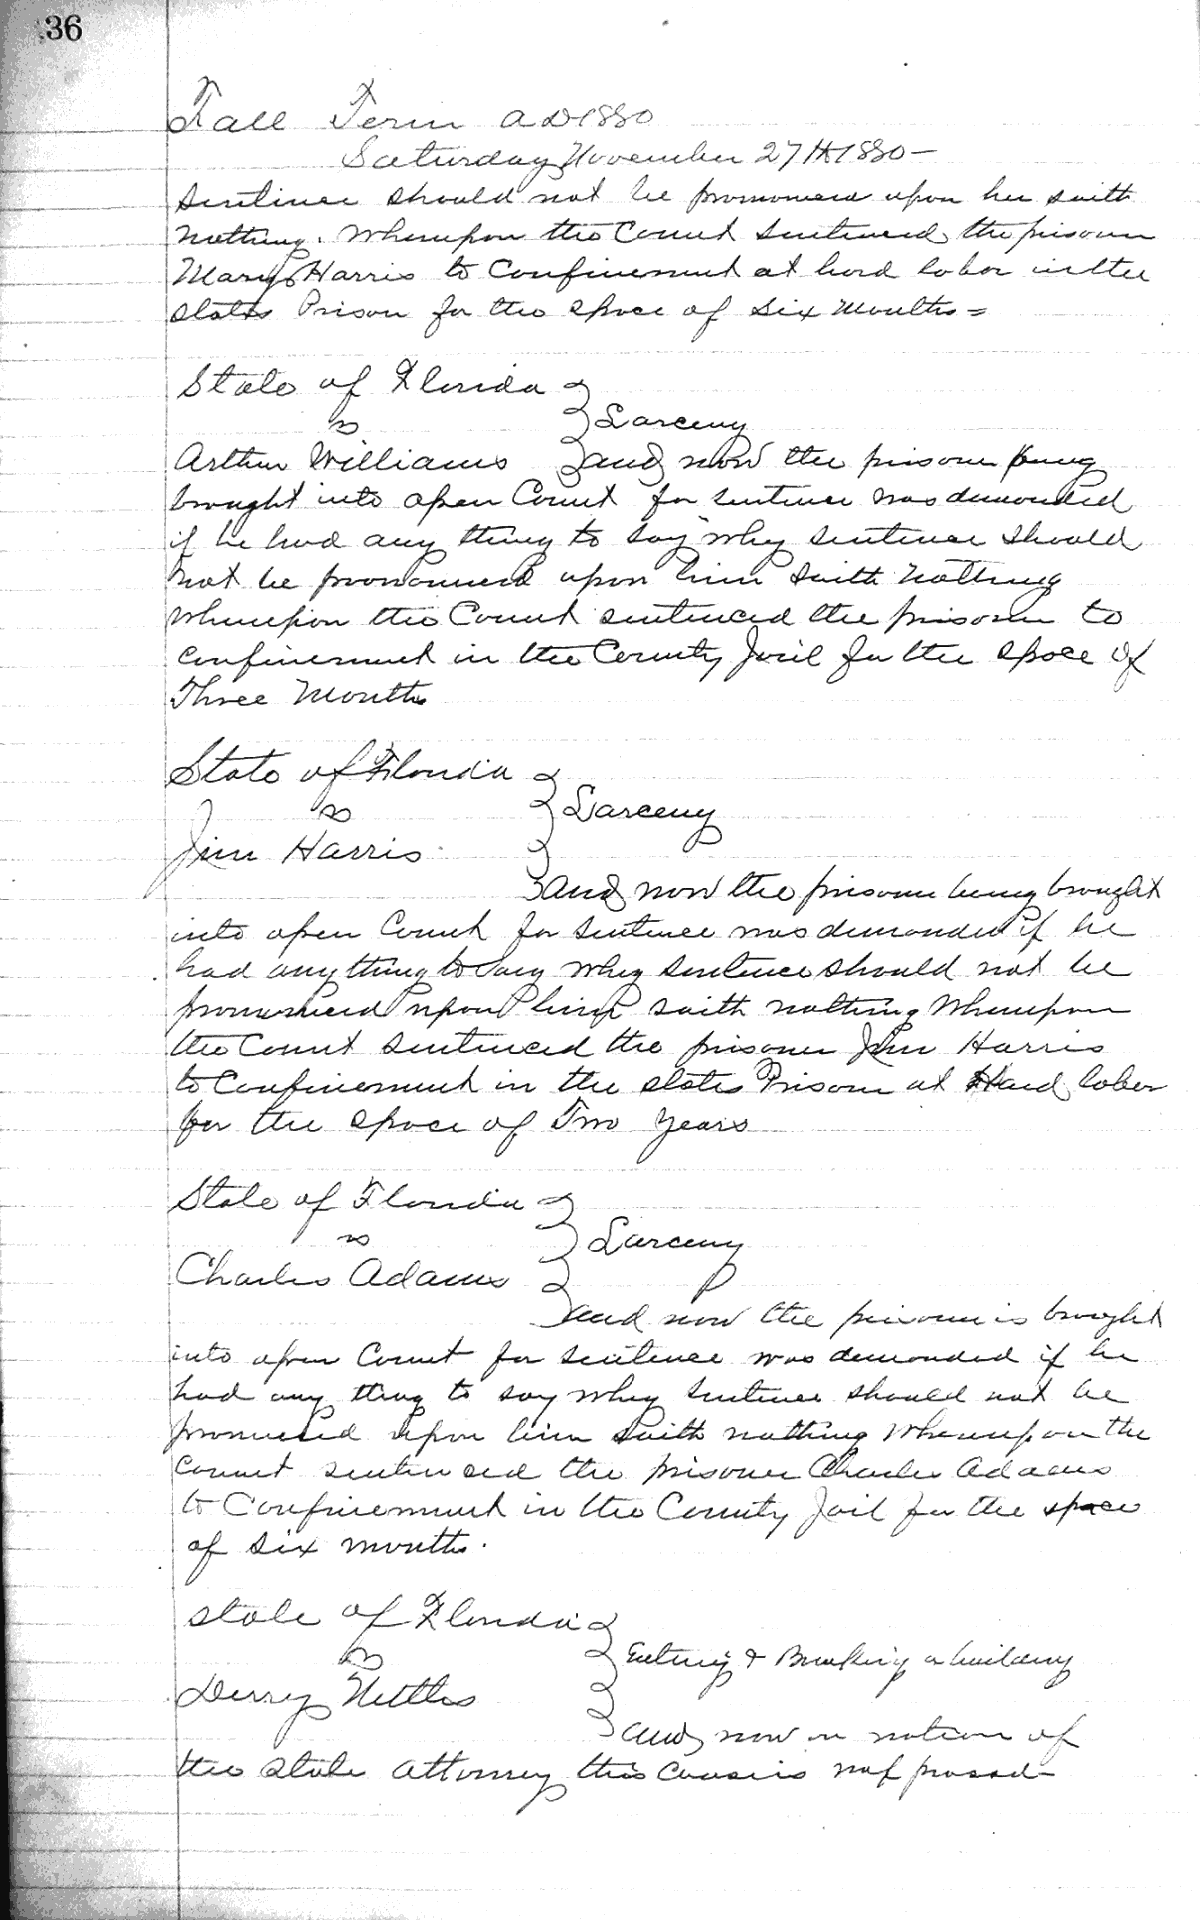 36
Fall Term AD 1880
Saturday November 27th 1880 –
sentence should not be pronounced upon her saith
nothing. Whereupon the Court sentenced the prisoner
Mary Harris to confinement at hard labor in the
states Prison for the space of six months =
State of Florida
vs
Larceny
Arthur Williams and now the prisoner being
brought into open Court for sentence was demanded
if he had any thing to say why sentence should
not be pronounced upon him saith nothing
Whereupon the Court sentenced the prisoner to
confinement in the County Jail for the space of
Three Months
State of Florida
vs
Larceny
Jim Harris
and now the prisoner being brought
into open Court for sentence was demanded if he
had any thing to say why sentence should not be
pronounced upon him saith nothing Whereupon
the Court sentenced the prisoner Jim Harris
to Confinement in the states Prison at Hard labor
for the space of Two years
State of Florida
vs
Larceny
Charles Adams
and now the prisoner is brought
into open Court for sentence was demanded if he
had any thing to say why sentence should not be
pronounced upon him saith nothing Whereupon the
Court sentenced the prisoner Charles Adams
to Confinement in the County Jail for the space
of six months.
State of Florida
vs
Entering & Breaking a building
Derry Nettles
and now on motion of
the State Attorney this cause is nol prossed –